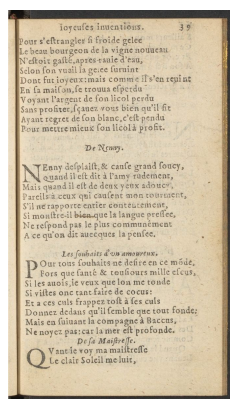 Ioyeuses inuentions. 39
Pour s'estrangler si froide gelee
Le beau bourgeon de la vigne nouueau
N'estoit gasté, apres tanie d'eau,
Selon son vueil la gelee suruint
Dont fut ioyeux: mais comme il s'en reuint
En sa maison, se trouua esperdu
Voyant l'argent de son licol perdu
Sans profiter, sçauez vous bien qu'il fit
Ayant regret de son blanc, c'est pendu
Pour mettre mieux son licol à profit.
De Nenny.
NEnny desplaist, & cause grand soucy,
Quand il est dit à l'amy rudement,
Mais quand il est de deux yeux adoucy,
Pareils à ceux qui causent mon tourment,
S'il ne rapporte entier contentement,
Si monstre-il bien que la langue pressee,
Ne respond pas le plus communément
A ce qu'on dit auecques la pensee.
Les souhaits d'vn amoureux.
POur tous souhaits ne desire en ce mõde,
Fors que santé & tousiours mille escus,
Si les auois, ie veux que lon me tonde
Si vistes onc tant faire de cocus:
Et a ces culs frappez tost à ses culs
Donnez dedans qu'il semble que tout fonde;
Mais en suiuant la compagne à Baccus,
Ne noyez pas: car la mer est profonde.
De sa Maistresse.
QVant ie voy ma maistresse
Le clair Soleil me luit,